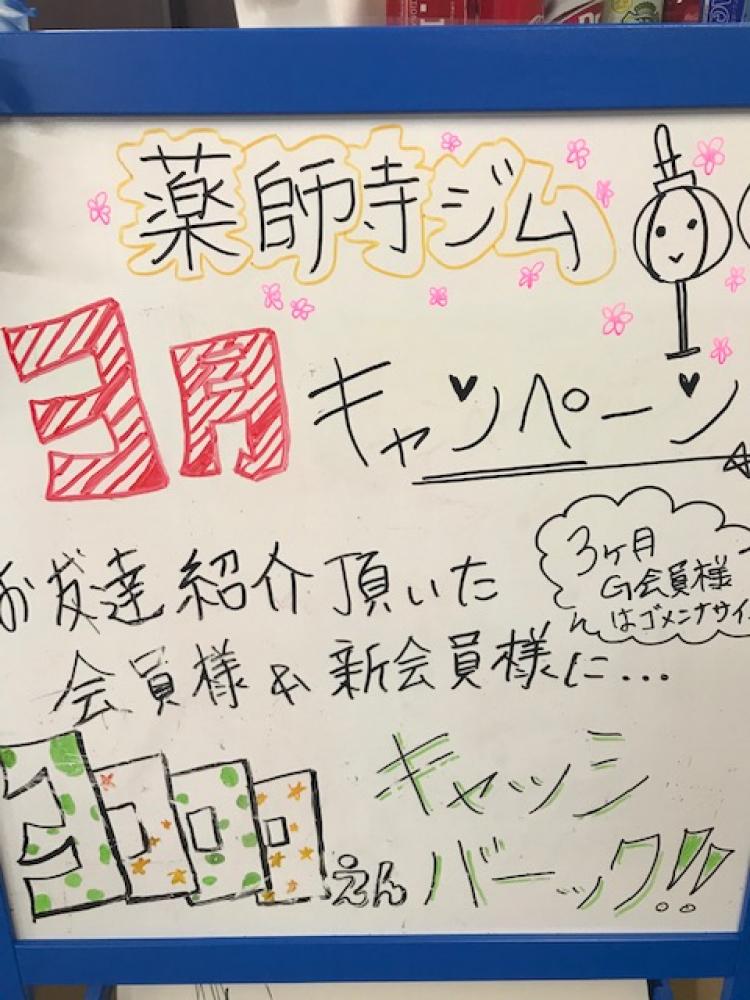 薬師寺ジム
3月キャンペーン
お友達紹介頂いた
会員様&新会員様に...
3ヶ月
G会員様
はゴメンナサイ
3000えん
キャッシュ
バーック!!